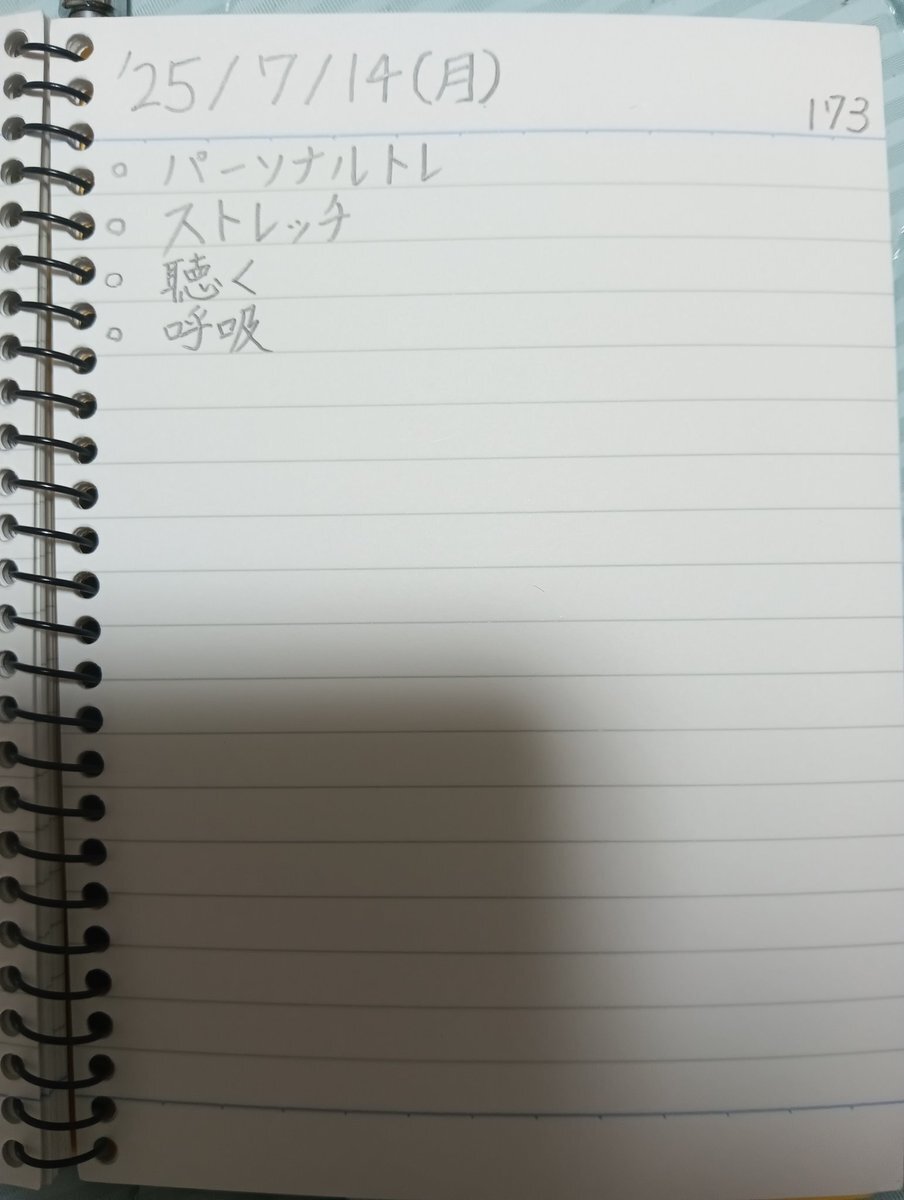 '25/7/14(月)
173
○ パーソナルトレ
○ ストレッチ
○ 聴く
○ 呼吸